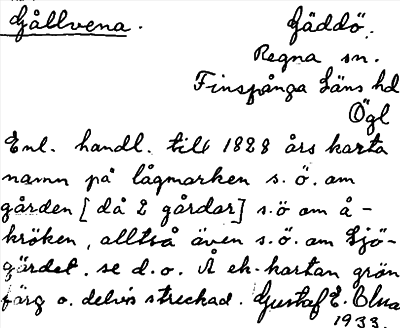 Gållvena.
Gäddö.
Regna sn.
Finspånga Läns hd
Ögl
Enl. handl. till 1828 års karta
namn på lågmarken s.ö. om
gården [då 2 gårdar] s.ö om å-
kröken, alltså även s.ö. om Sjö-
gärdet. se d.o. Å ek. kartan grön
färg o. delvis streckad. Gustaf E. Olva
1933.